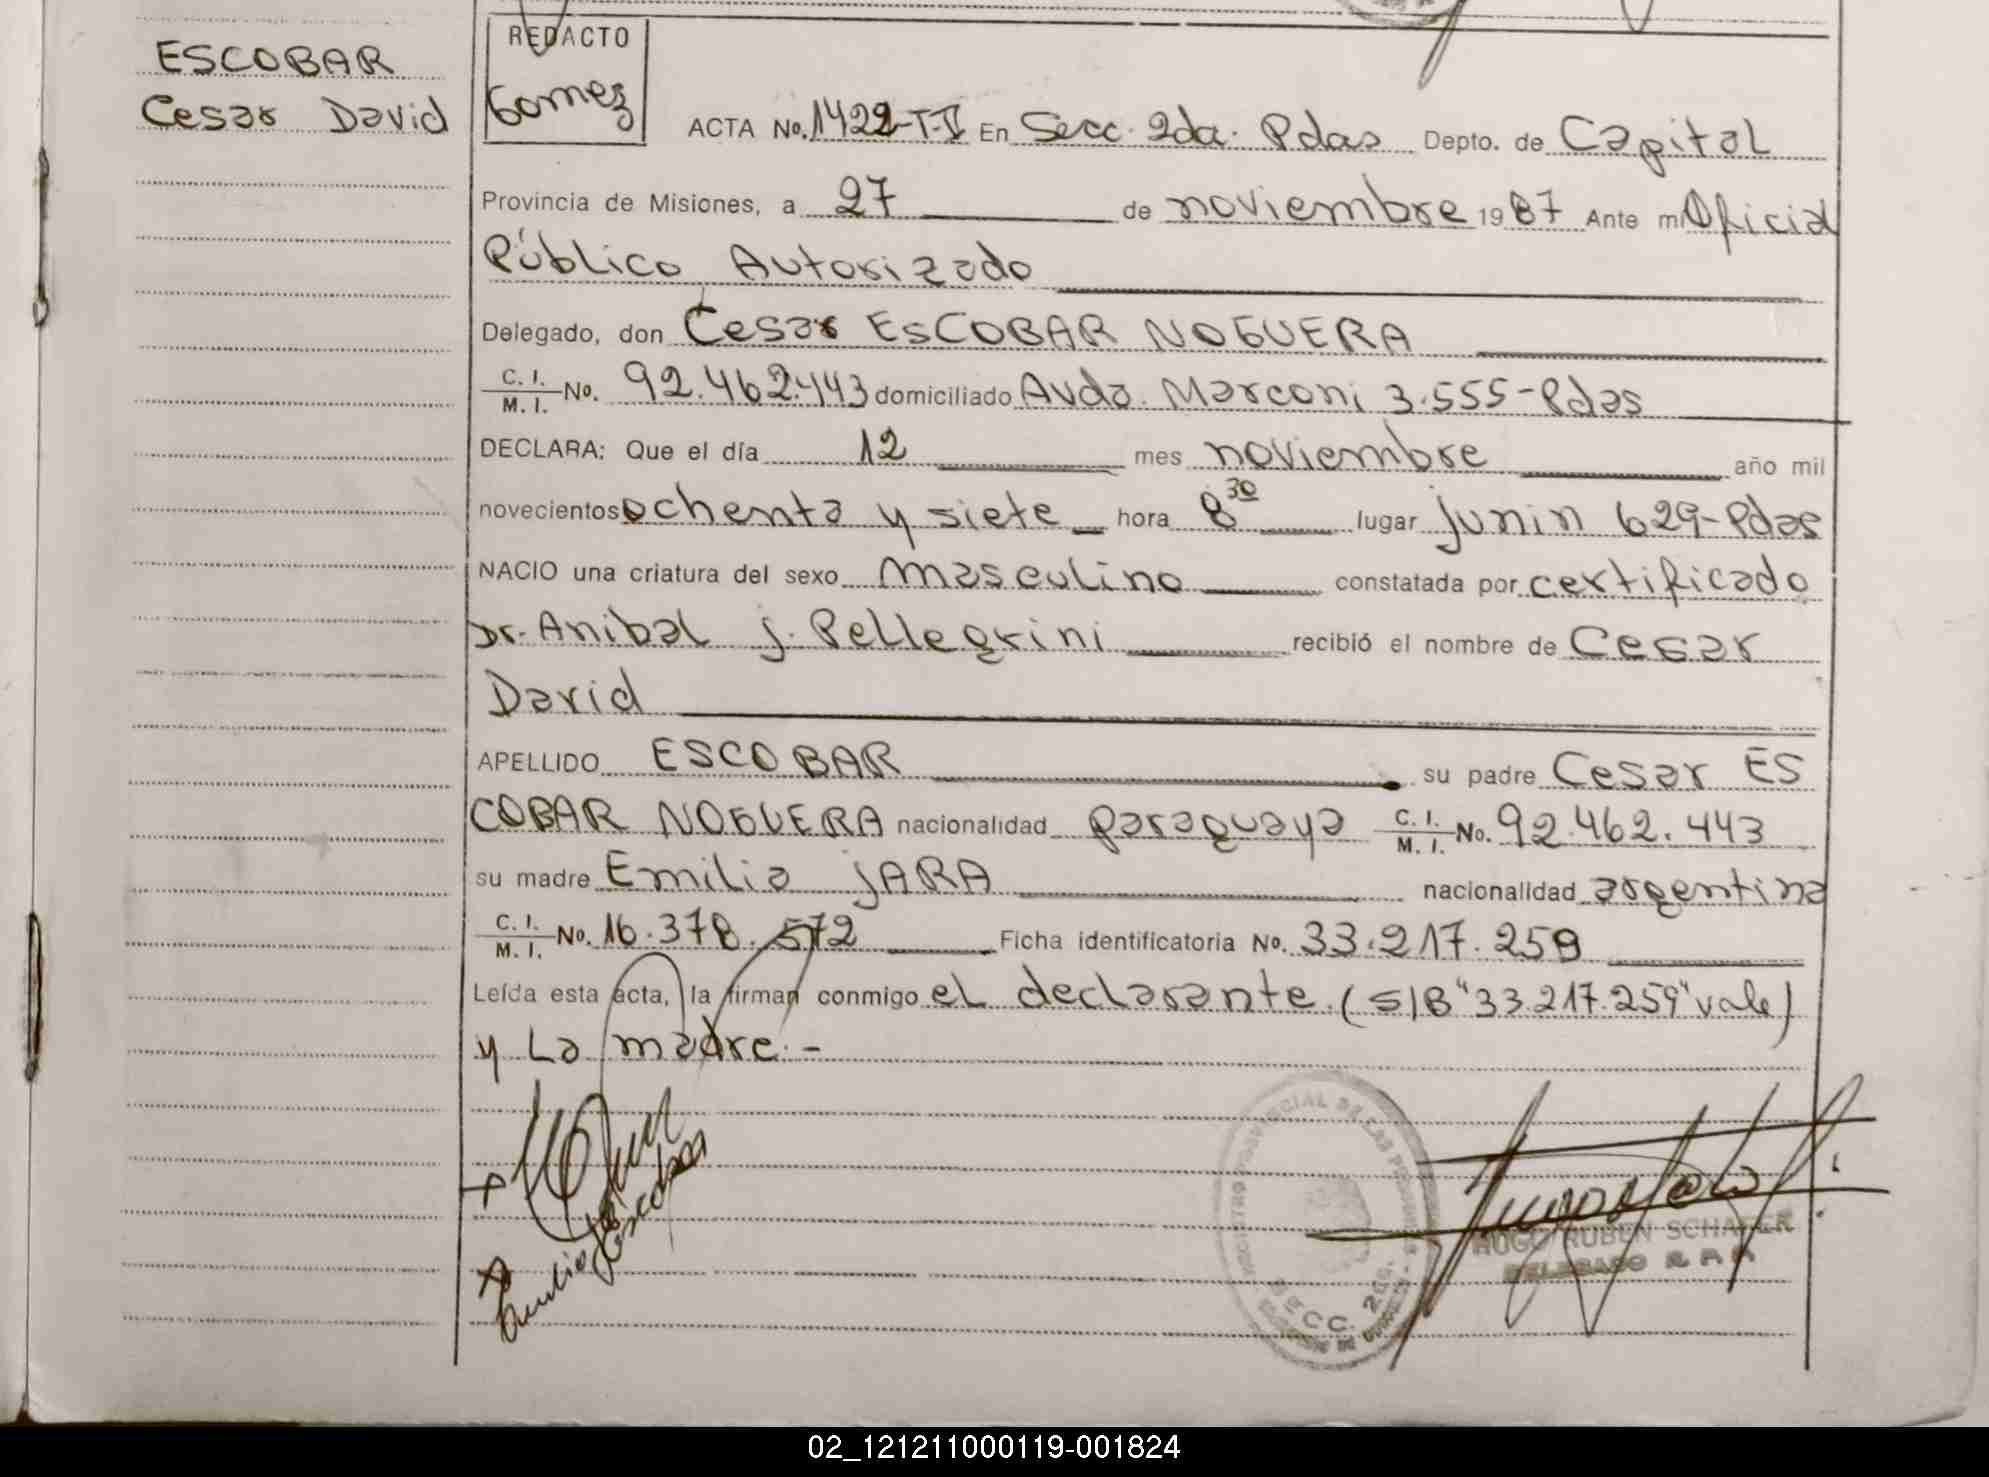 ESCOBAR
Cesar David
REDACTO
Gomez
ACTA No. 1422-T-II En Secc. 2da. Pdas Depto. de Capital
Provincia de Misiones, a 27 de noviembre 1987 Ante mi Oficial
Público Autorizado
Delegado, don Cesar ESCOBAR NOGUERA
C. I. M. I. No. 92.462.443 domiciliado Avda. Marconi 3.555-Pdas
DECLARA: Que el día 12 mes noviembre año mil
novecientos ochenta y siete hora 8 30 lugar junin 629-Pdas
NACIO una criatura del sexo masculino constatada por certificado
Dr. Anibal J. Pellegrini recibió el nombre de Cesar
David
APELLIDO ESCOBAR su padre Cesar ES
COBAR NOGUERA nacionalidad paraguaya C. I. M. I. No. 92.462.443
su madre Emilia JARA nacionalidad argentina
C. I. M. I. No. 16.378.572 Ficha identificatoria No. 33.217.259
Leída esta acta, la firman conmigo el declarante. (S/B "33.217.259" vale)
y La madre.-
HUGO RUBEN SCHAFER
DELEGADO R.P.P.
SECC. 2da.
02_121211000119-001824